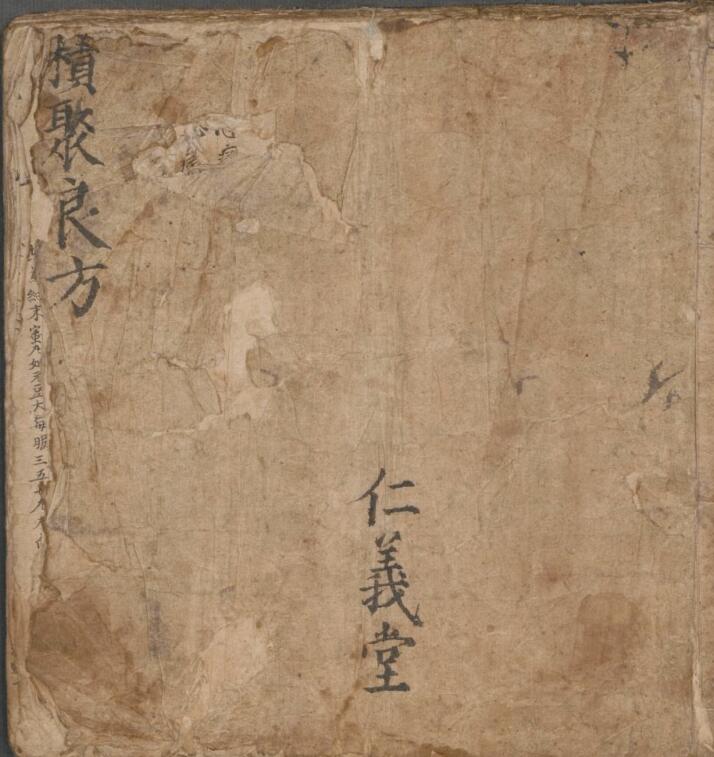 仁義堂
積聚良方
細末蜜丸如菉豆大每服三五十丸